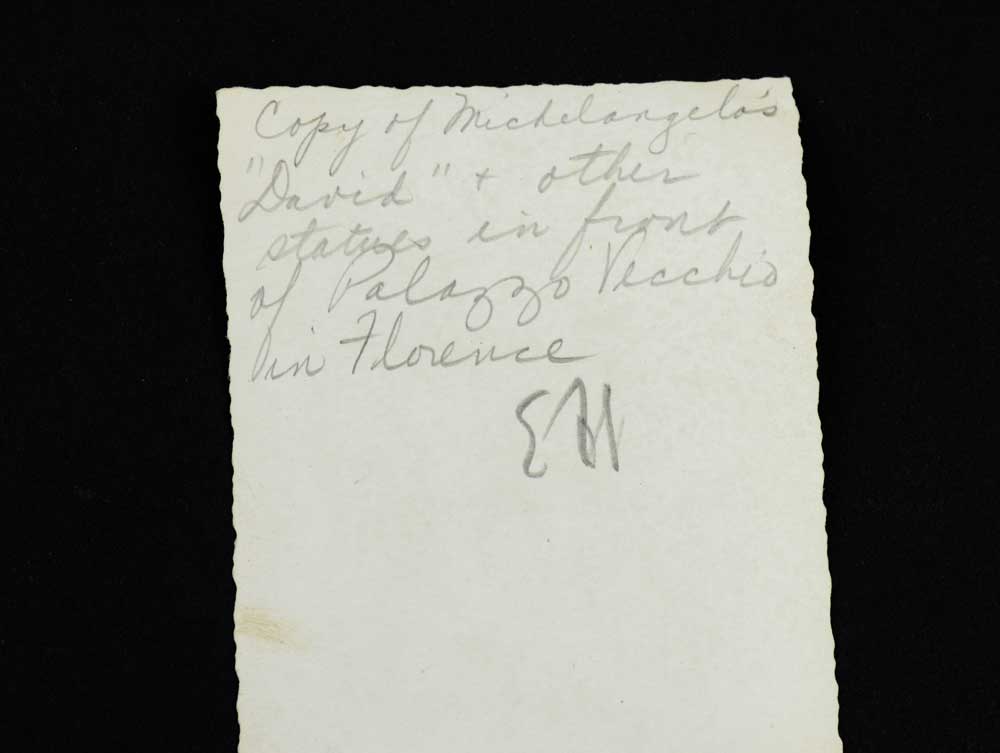 Copy of Michelangelo's
"David" + other
statues in front
of Palazzo Vecchio
in Florence
EH